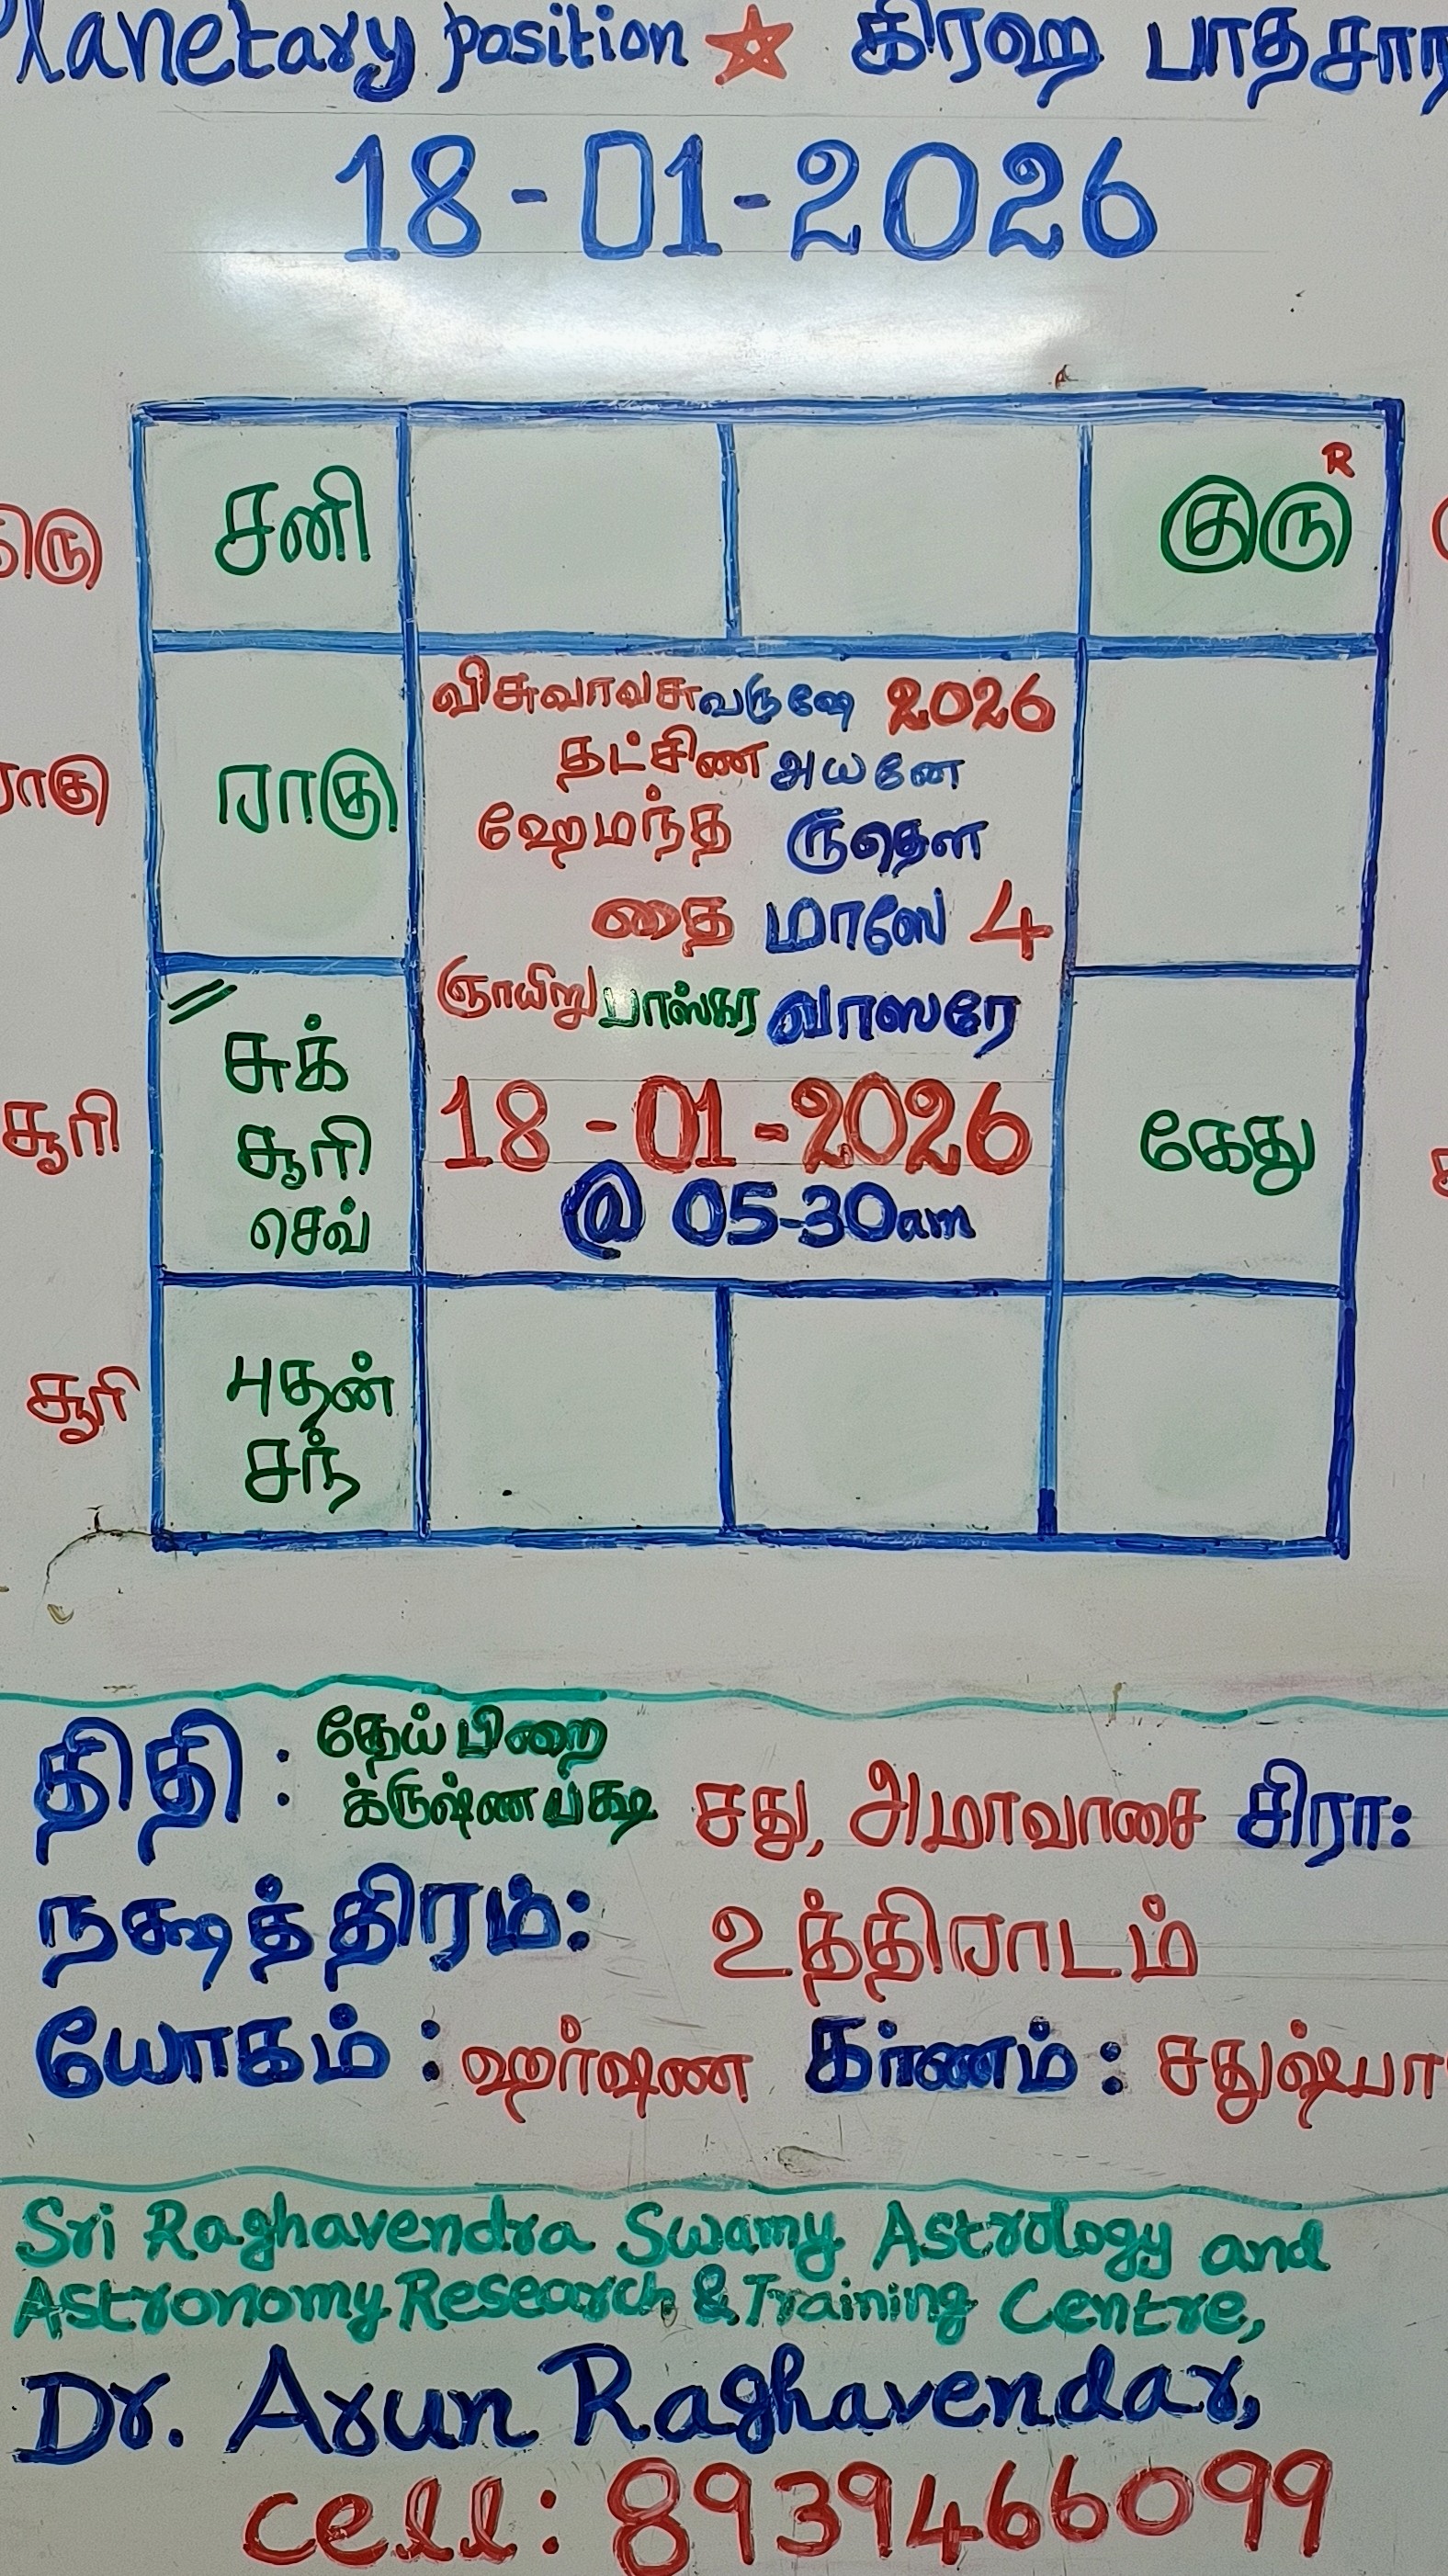 Planetary position ☆ கிரஹ பாதசார
18-01-2026
சனி
குரு R
ராகு
விசுவாவசுவருஷே 2026
தட்சிண அயனே
ஹேமந்த ருதௌ
தை மாஸே 4
ஞாயிறு பாஸ்கர வாஸரே
18-01-2026
@ 05-30am
//
சுக்
சூரி
செவ்
கேது
புதன்
சந்
ராகு
சூரி
சூரி
திதி : தேய் பிறை
க்ருஷ்ண பக்ஷ சது, அமாவாசை சிரா:
நக்ஷத்திரம்: உத்திராடம்
யோகம் : ஹர்ஷண கர்ணம் : சதுஷ்பா
Sri Raghavendra Swamy Astrology and
Astronomy Research & Training Centre,
Dr. Arun Raghavendar,
cell: 8939466099